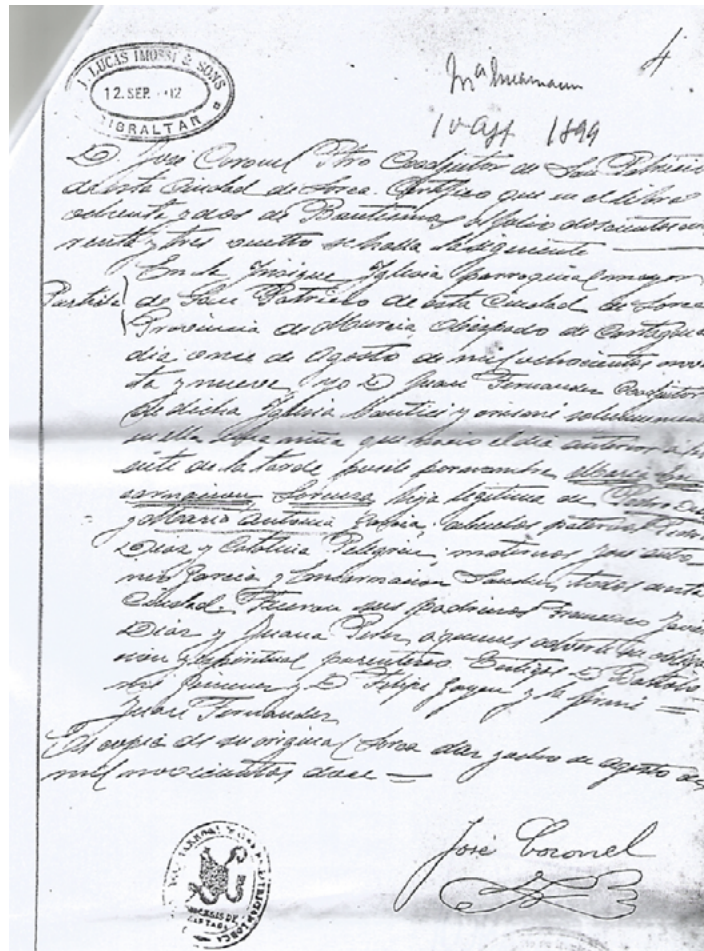 J. LUCAS IMOSSI & SONS
12. SEP. 12
GIBRALTAR
4
10 Agt 1899
D. José Coronel Pbro Coadjutor de San Patricio
de esta Ciudad de Lorca. Certifico que en el libro
ochenta y dos de Bautismos al folio doscientos
y tres vuelto se halla la siguiente
Partida
En la Insigne Iglesia parroquial mayor
de San Patricio de esta Ciudad de Lorca
Provincia de Murcia, Obispado de Cartagena
dia once de Agosto de mil ochocientos nove
ta y nueve, yo D Juan Fernandez Coadjutor
de dicha Iglesia bauticé y crismé solemnemente
en ella una niña que nació el dia anterior a las
siete de la tarde púsele por nombre Maria En
carnacion Lorenza, hija legitima de Pedro Diaz
y Maria Antonia Garcia, abuelos paternos
Diaz y Catalina Pelegrin; maternos José Anto
nio Garcia y Encarnacion Sanchez, todos de esta
Ciudad. Fueron sus padrinos Francisco Javier
Diaz y Juana Perez, a quienes advertí su obliga
cion y espiritual parentesco. Testigos D
Jimenez y D Felipe Gayon y lo firmé =
Juan Fernandez
Es copia de su original Lorca diez y ocho de agosto de
mil novecientos doce =
José Coronel